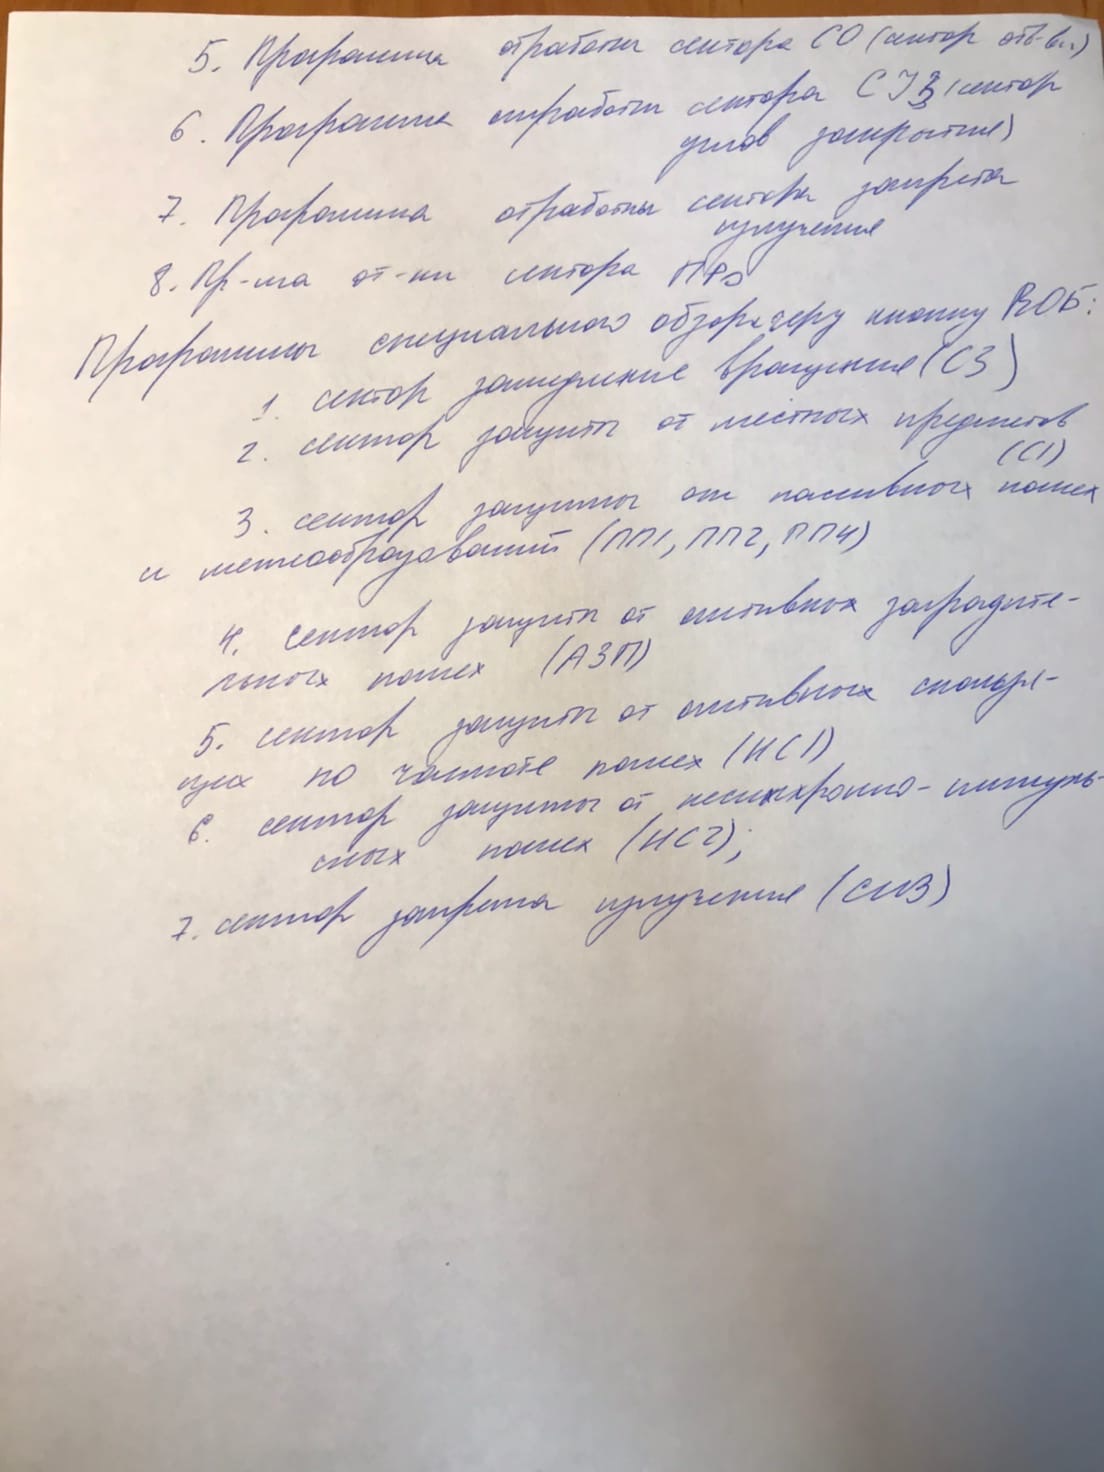 5. Программа отработки сектора СО (сектор отв-ви)
6. Программа отработки сектора СУЗ (сектор
углов закрытия)
7. Программа отработки сектора запрета
излучения
8. Пр-ма от-ки сектора
Программы специального обзора через кнопку ВОБ:
1. сектор замедление вращения (СЗ)
2. сектор защиты от местных предметов
(С1)
3. сектор защиты от пассивных помех
и метеообразований (ПП1, ПП2, ПП4)
4. сектор защиты от активных заградите-
льных помех (АЗП)
5. сектор защиты от активных скользя-
щих по частоте помех (НС1)
6. сектор защиты от несинхронно-импуль-
сных помех (НС2);
7. сектор запрета излучения (СИЗ)